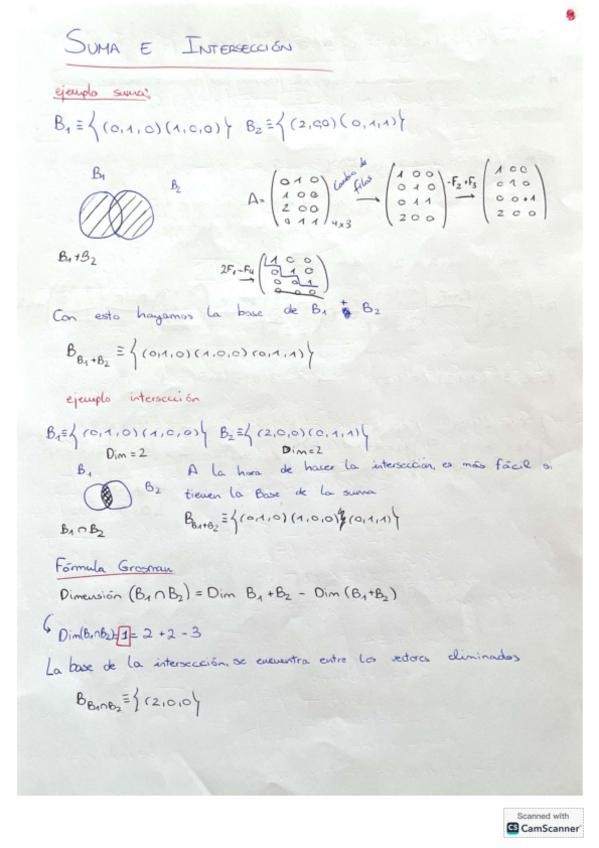 SUMA E INTERSECCIÓN
ejemplo suma:
B₁ ≡ {(0,1,0)(1,0,0)} B₂ ≡ {(2,0,0)(0,1,1)}
B₁ B₂
B₁+B₂
A = (0 1 0
1 0 0
2 0 0
0 1 1)4x3
Cambio de filas →
(1 0 0
0 1 0
0 1 1
2 0 0)
-F₂+F₃ →
(1 0 0
0 1 0
0 0 +1
2 0 0)
2F₁-F₄ →
(1 0 0
0 1 0
0 0 1
0 0 0)
Con esto hayamos la base de B₁ + B₂
B B₁+B₂ ≡ {(0,1,0)(1,0,0)(0,1,1)}
ejemplo intersección
B₁≡{(0,1,0)(1,0,0)} B₂≡{(2,0,0)(0,1,1)}
Dim = 2 Dim=2
B₁ B₂
B₁∩B₂
A la hora de hacer la intersección, es más fácil si
tienen la Base de la suma
B B₁+B₂ ≡{(0,1,0)(1,0,0)(0,1,1)}
Fórmula Grasman
Dimensión (B₁∩B₂) = Dim B₁+B₂ - Dim (B₁+B₂)
Dim(B₁∩B₂)=1= 2+2-3
La base de la intersección, se encuentra entre los vectores eliminados
B B₁∩B₂ ≡{(2,0,0)}
Scanned with
CS CamScanner